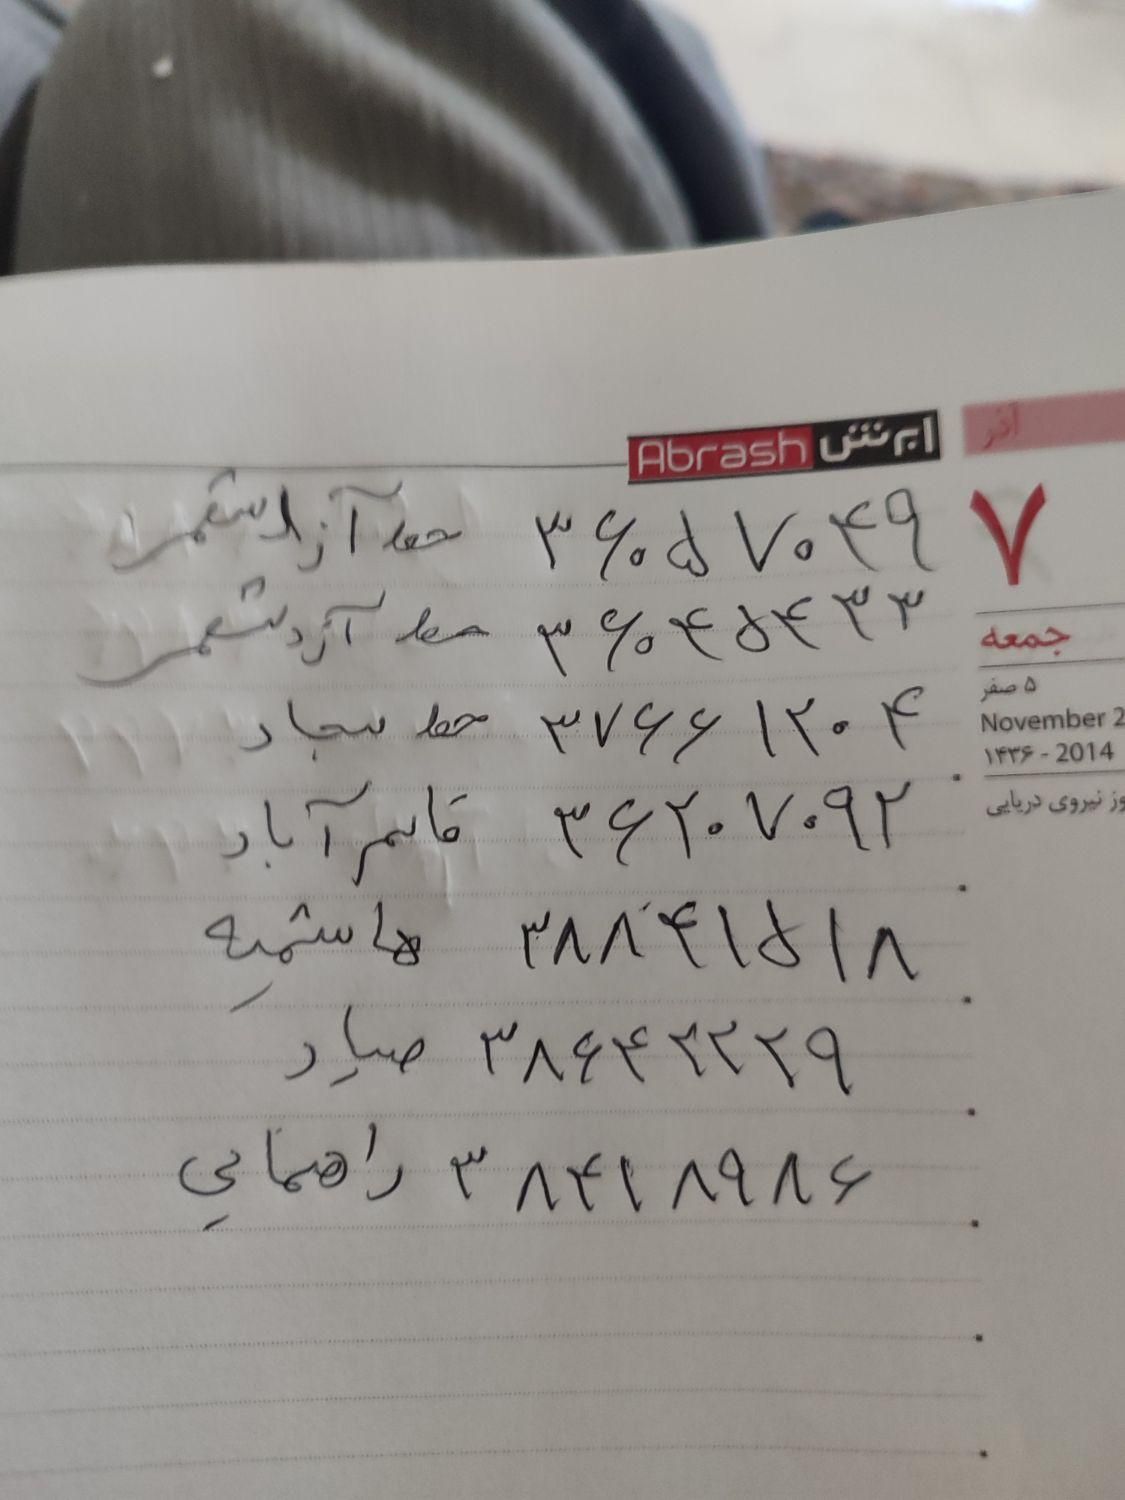 آذر
Abrash ابرش
۷
جمعه
۵ صفر
November 2
۱۴۳۶ - 2014
وز نیروی دریایی
۳۶۰۵۷۰۴۹ خط آزادشهر
۳۶۰۴۵۴۳۳ خط آزادشهر
۳۷۶۶۱۲۰۴ خط سجاد
۳۶۲۰۷۰۹۲ قاسم آباد
۳۸۸۴۱۵۱۸ هاشمیه
۳۸۶۴۲۲۲۹ صیاد
۳۸۴۱۸۹۸۶ راهنمایی